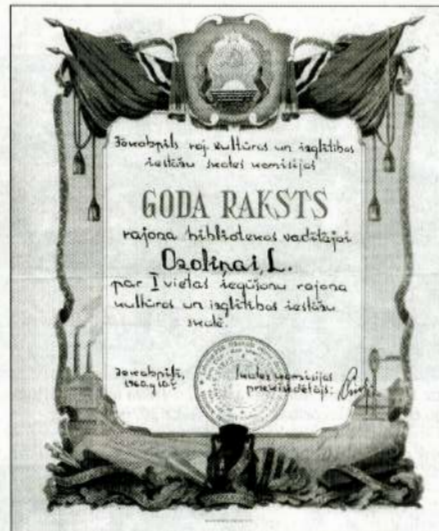 Jēkabpils raj. kultūras un izglītības
iestāžu skates komisijas
GODA RAKSTS
rajona bibliotekas vadītājai
Ozoliņai, L.
par I vietas iegūšanu rajona
kultūras un izglītības iestāžu
skatē.
Jēkabpilī,
Skates komisijas
priekšsēdētājs: